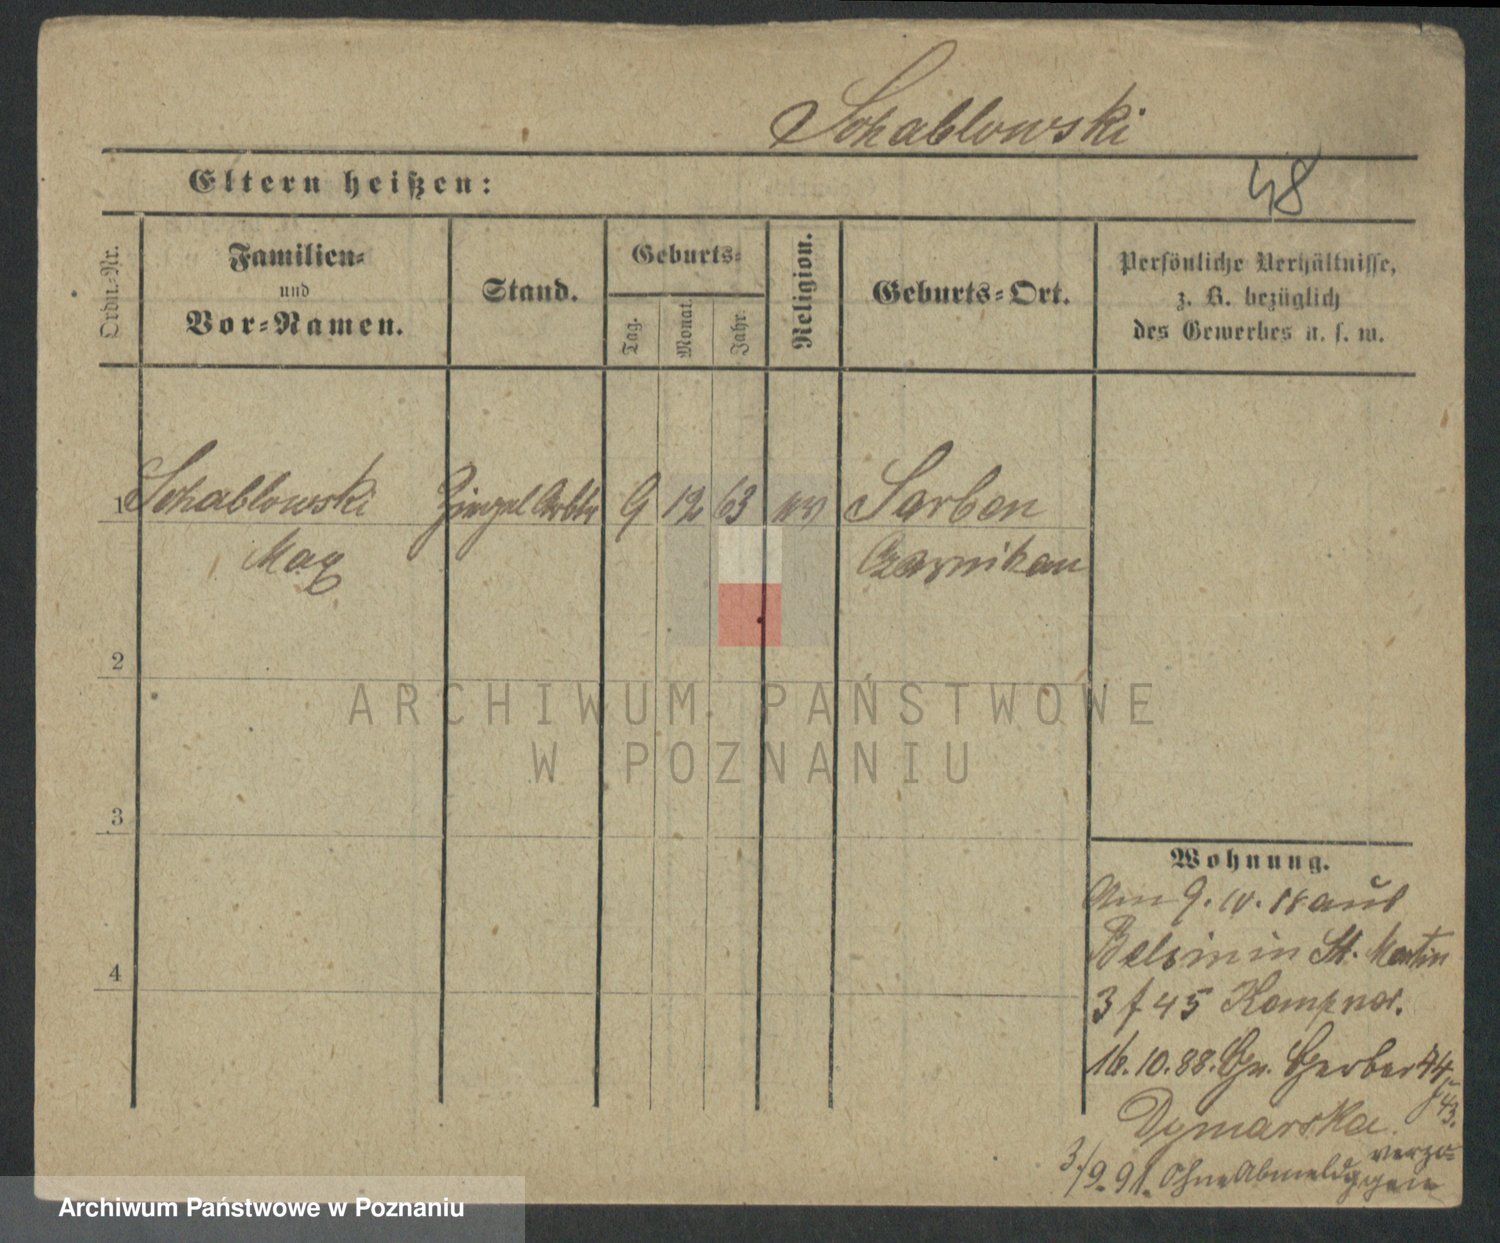 Schablowski
Eltern heißen:
48
Ordn.-Nr.
Familien-
und
Vor-Namen.
Stand.
Geburts-
Tag.
Monat.
Jahr.
Religion.
Geburts-Ort.
Persönliche Verhältnisse,
z. B. bezüglich
des Gewerbes u. s. w.
1 Schablowski Ziegel Arbtr 9 12 63 Sarben
Max Czarnikau
2
3
4
ARCHIWUM PAŃSTWOWE
W POZNANIU
Wohnung.
Am 9. 10. aus
in St. Martin
3 f 45
16. 10. 88. Gr. Gerber 44
f 43.
Dymarska.
3/9. 91. Ohne Abmeldg verzo-
gen
Archiwum Państwowe w Poznaniu